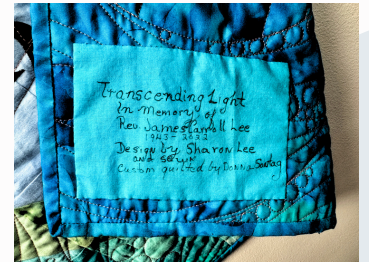 Transcending Light
In Memory of
Rev. James Lee
1943-2022
Design by Sharon Lee
and sewn
Custom quilted by Donna